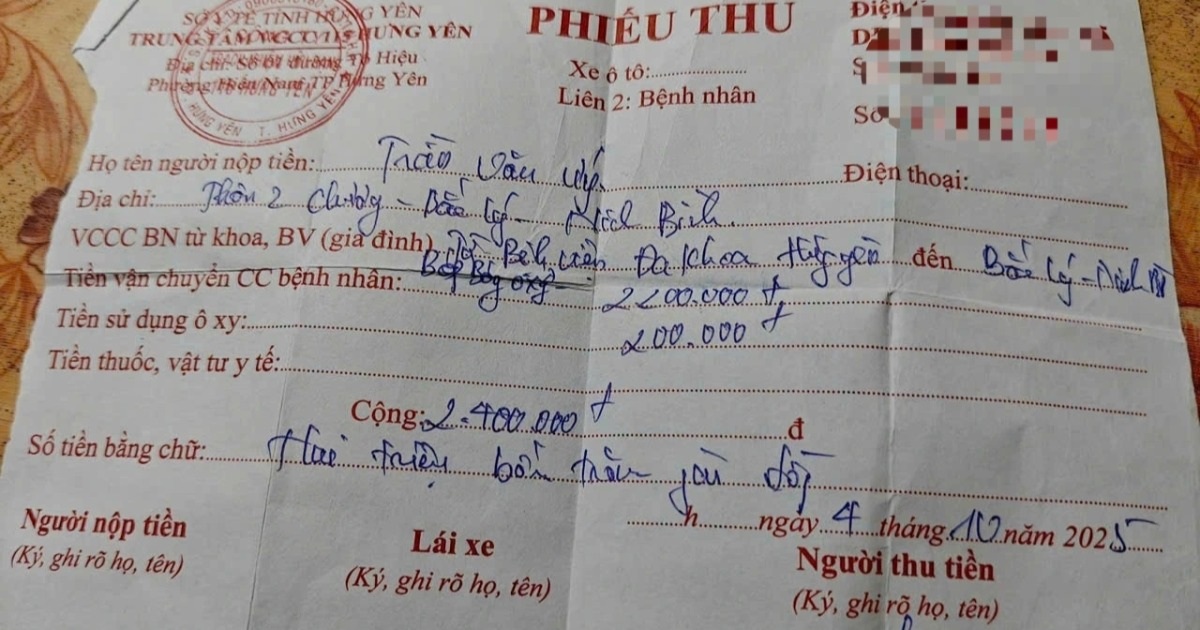 SỞ Y TẾ TỈNH HƯNG YÊN
TRUNG TÂM VCCC 115 HƯNG YÊN
Địa chỉ: Số 01 đường Tô Hiệu
Phường Hiến Nam, TP Hưng Yên
HƯNG YÊN T. HƯNG YÊN
PHIẾU THU
Xe ô tô:
Liên 2: Bệnh nhân
Điện
Số
Họ tên người nộp tiền: Trần Văn Uý
Điện thoại:
Địa chỉ: Thôn 2 - Bắc Lý - Ninh Bình
VCCC BN từ khoa, BV (gia đình) Bệnh viện Đa khoa Hưng Yên đến Bắc Lý - Ninh
Tiền vận chuyển CC bệnh nhân: 2200.000 đ
Tiền sử dụng ô xy: 200.000 đ
Tiền thuốc, vật tư y tế:
Cộng: 2.400.000 đ đ
Số tiền bằng chữ: Hai triệu bốn trăm đồng
h ngày 4 tháng 10 năm 2025
Người nộp tiền
(Ký, ghi rõ họ, tên)
Lái xe
(Ký, ghi rõ họ, tên)
Người thu tiền
(Ký, ghi rõ họ, tên)